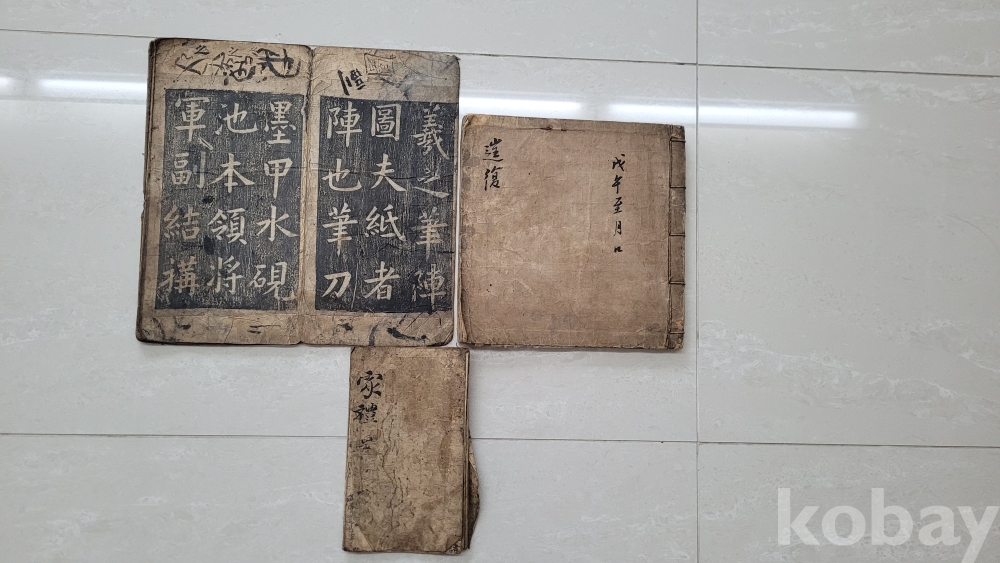 羲之筆陣
圖夫紙者
陣也筆刀
墨甲水硯
池本領將
軍副結構
戊午至月
復
家禮
kobay